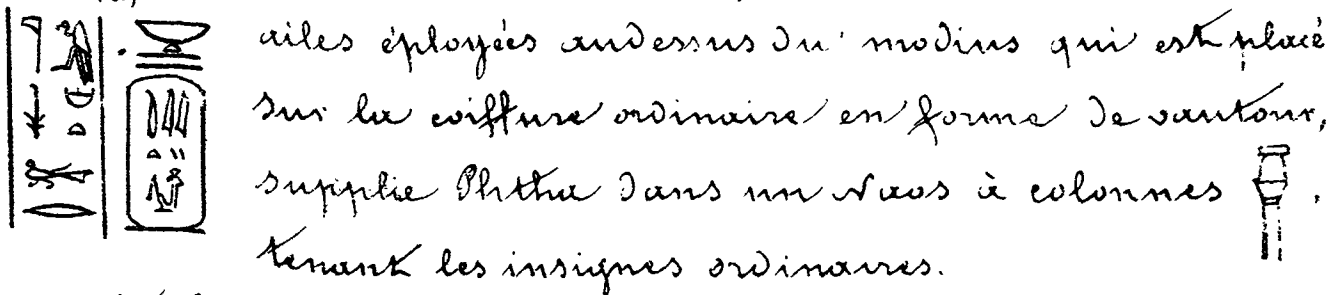 ailes éployées audessus du modius qui est placé
sur la coiffure ordinaire en forme de vautour,
supplie Phtha dans un Naos à colonnes .
tenant les insignes ordinaires.